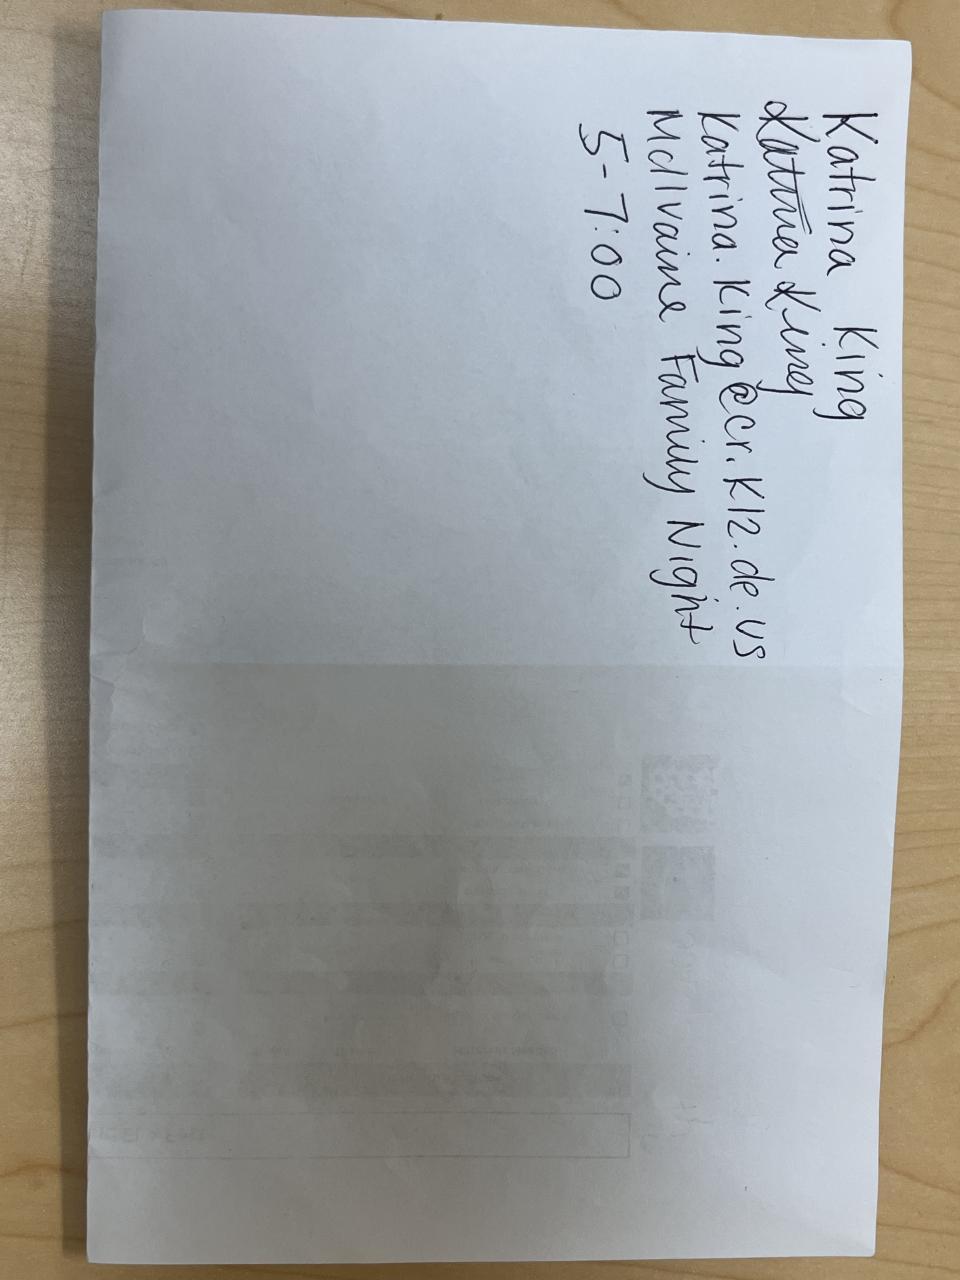 Katrina King
Katrina King
Katrina.King@cr.K12.de.us
McIlvaine Family Night
5-7:00